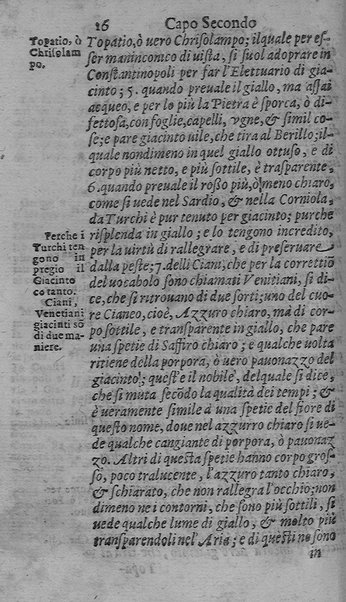 26 Capo Secondo
Topatio, ò
Chrisolam
po.
Topatio, ò vero Chrisolampo; ilquale per es-
ser maninconico di uista, si suol adoprare in
Constantinopoli per far l'Elettuario di gia-
cinto; 5. quando preuale il giallo, ma assai
acqueo, e per lo più la Pietra è sporca, ò di-
fettosa, con foglie, capelli, vgne, & simil co-
se; e pare giacinto uile, che tira al Berillo; il-
quale nondimeno in quel giallo ottuso, e di
corpo più netto, e più sottile, è trasparente.
6. quando preuale il roßo più, ò meno chiaro,
come si uede nel Sardio, & nella Corniola,
da Turchi è pur tenuto per giacinto; purche
Perche i
Turchi ten
gono in
pregio il
Giacinto
cotanto.
Ciani,
Venetiani
giacinti sõ
di due ma-
niere.
risplenda in giallo; e lo tengono incredito,
per la virtù di rallegrare, e di preseruare
dalla peste; 7. delli Ciani, che per la correttiõ
del uocabolo sono chiamati Venitiani, si di-
ce, che si ritrouano di due sorti; uno del cuo-
re Cianeo, cioè, Azzuro chiaro, ma di cor-
po sottile, e transparente in giallo, che pare
una spetie di Saffiro chiaro; e qualche uolta
ritiene della porpora, ò uero pauonazzo del
giacinto; quest'è il nobile, delquale si dice,
che si muta secõdo la qualità dei tempi; &
è ueramente simile a una spetie del fiore di
questo nome, doue nel azzurro chiaro si ue-
de qualche cangiante di porpora, ò pauonaz
zo. Altri di questa spetie hanno corpo gros-
so, poco tralucente, l'azzuro tanto chiaro,
& schiarato, che non rallegra l'occhio; non
dimeno ne i contorni, che sono più sottili, si
uede qualche lume di giallo, & molto più
transparendoli nel'Aria; e di questi ne sono
in